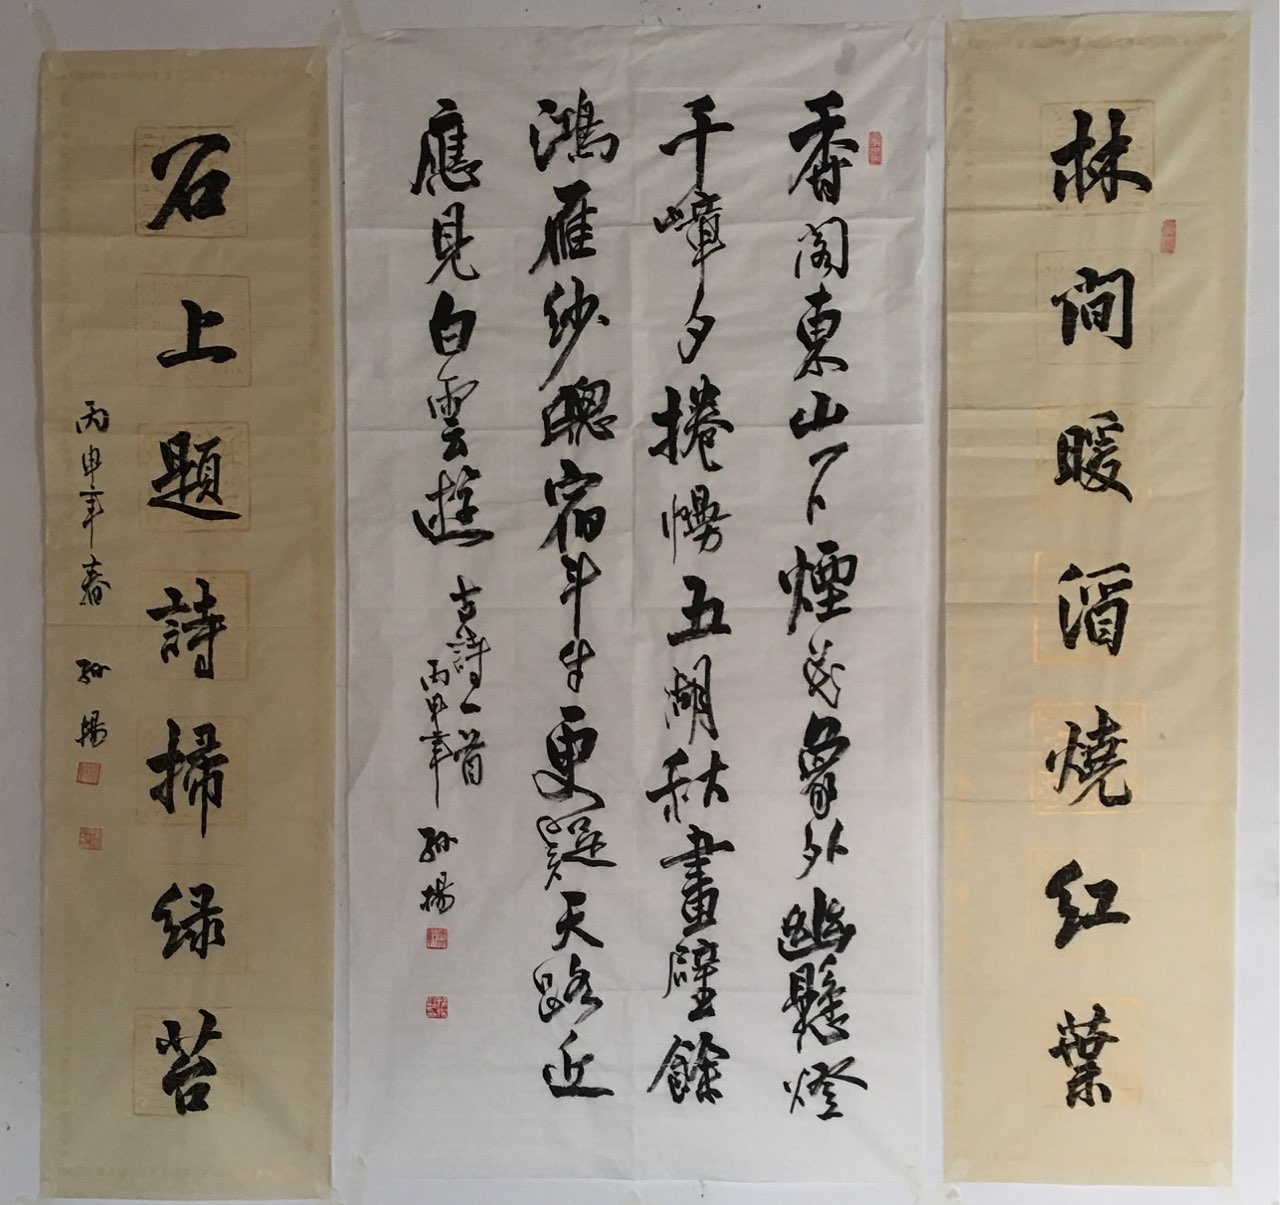 林间暖酒燒红葉
香阁東山下煙花象外幽懸燈
千嶂夕捲幔五湖秋畫壁餘
鴻雁紗牕宿斗牛更疑天路近
應見白雲遊
古詩一首
丙申年 孙揚
石上題詩掃绿苔
丙申年春 孙揚